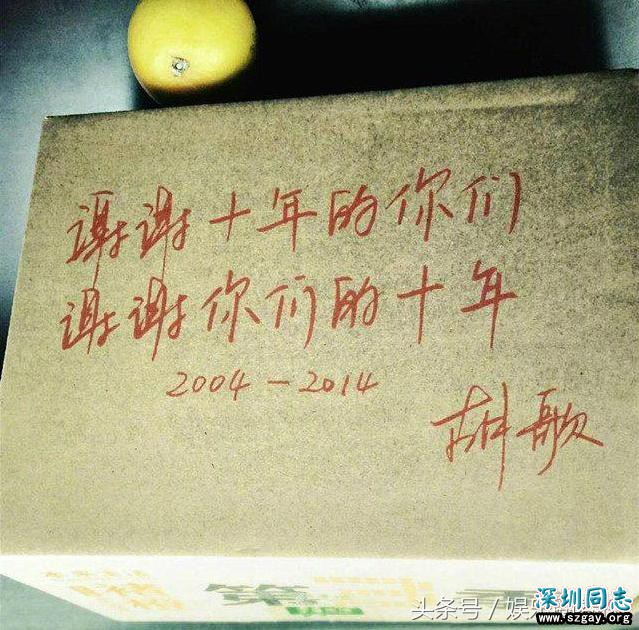 谢谢十年的你们
谢谢你们的十年
2004-2014
胡歌
头条号/娱
深圳同志
www.szgay.org